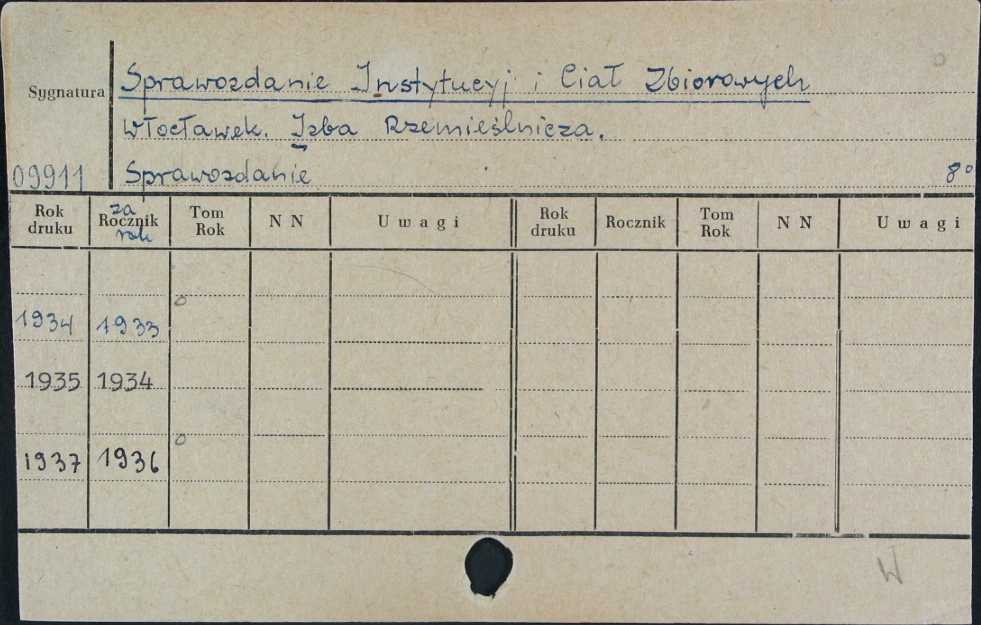 Sprawozdanie Instytucyj i Ciał Zbiorowych
Sygnatura
Włocławek. Izba Rzemieślnicza.
09911 Sprawozdanie 8°
Rok druku za Rocznik rok Tom Rok N N Uwagi Rok druku Rocznik Tom Rok N N Uwagi
1934 1933
1935 1934
1937 1936
W